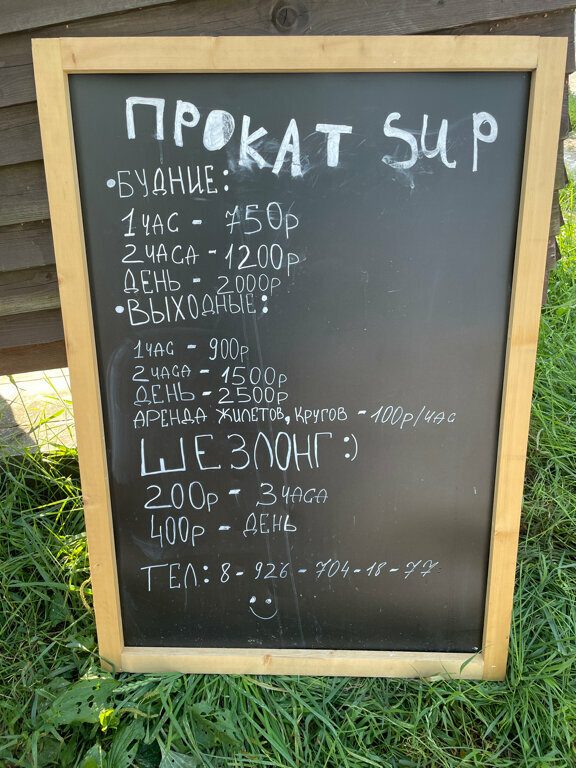 ПРОКАТ SUP
•БУДНИЕ:
1 ЧАС - 750р
2 ЧАСА - 1200р
ДЕНЬ - 2000р
•ВЫХОДНЫЕ:
1 ЧАС - 900р
2 ЧАСА - 1500р
ДЕНЬ - 2500р
АРЕНДА ЖИЛЕТОВ, КРУГОВ - 100р/ЧАС
ШЕЗЛОНГ :)
200р - 3 ЧАСА
400р - ДЕНЬ
ТЕЛ: 8-926-704-18-77